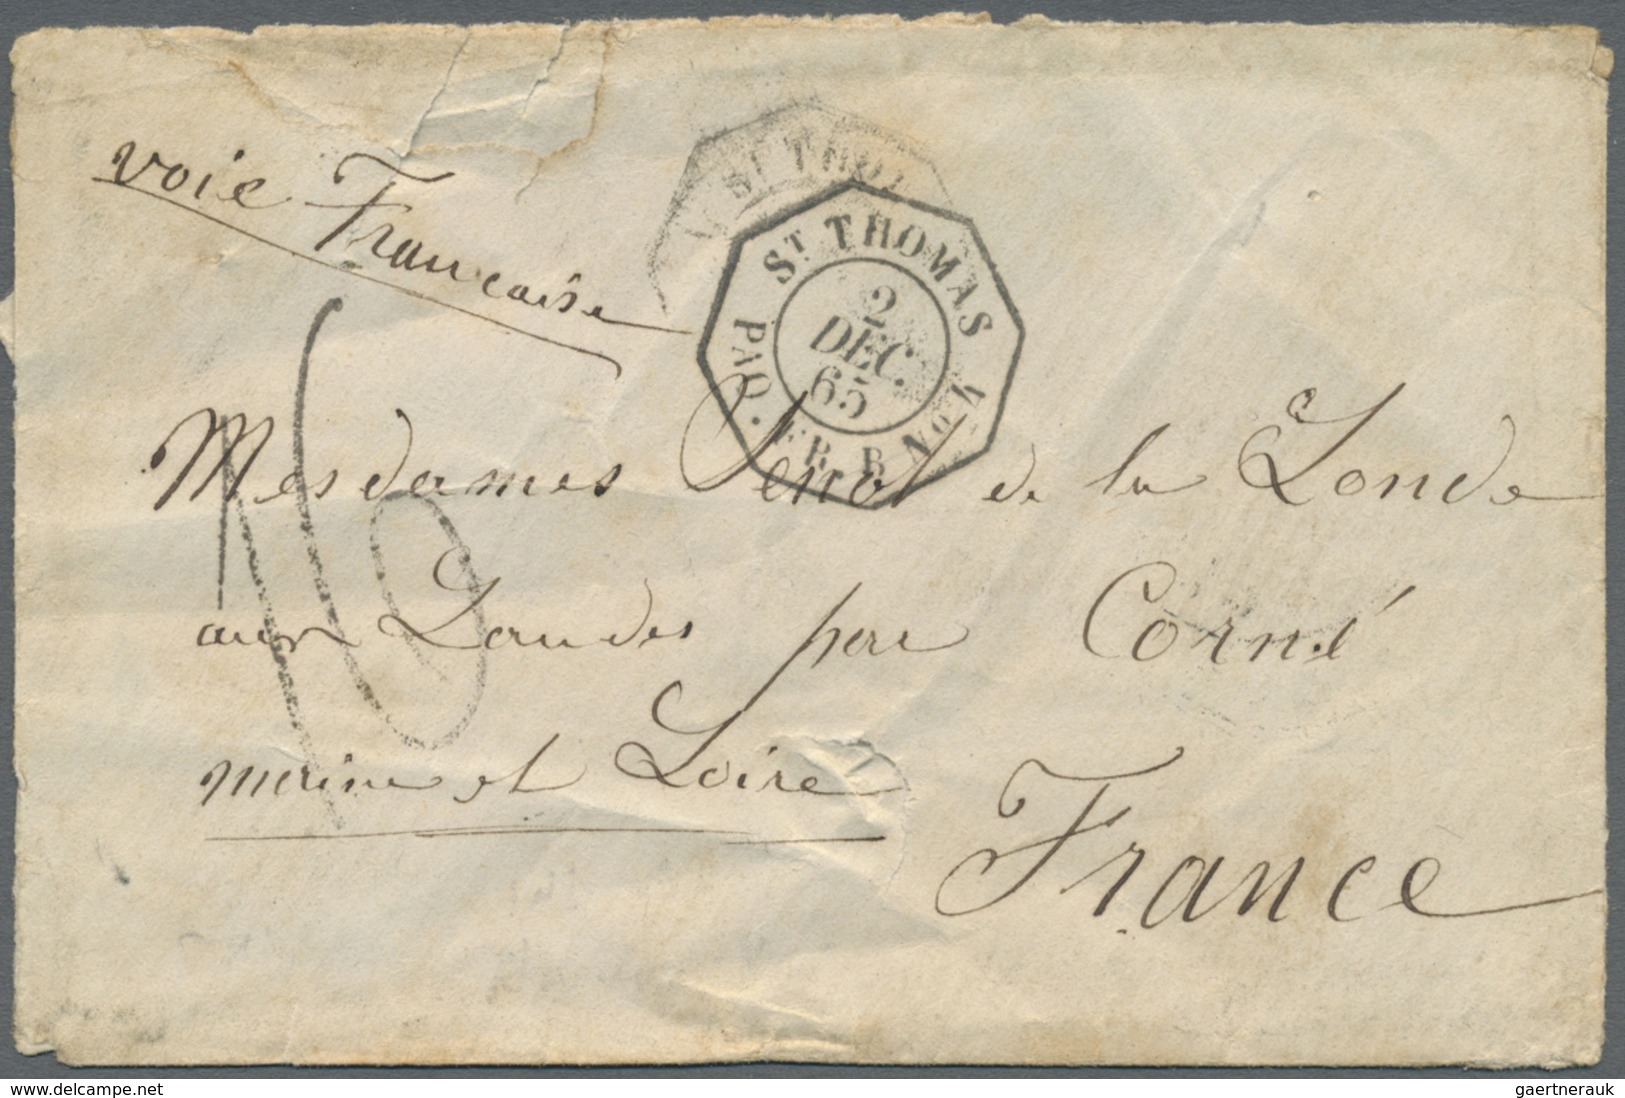 voie Francaise
ST THO
ST THOMAS
PAQ. FR. B No 4
2
DEC.
65
16
Mesdames Senot de la Londe
aux Landes par Corné
meine et Loire
France
www.delcampe.net
gaertnerauk